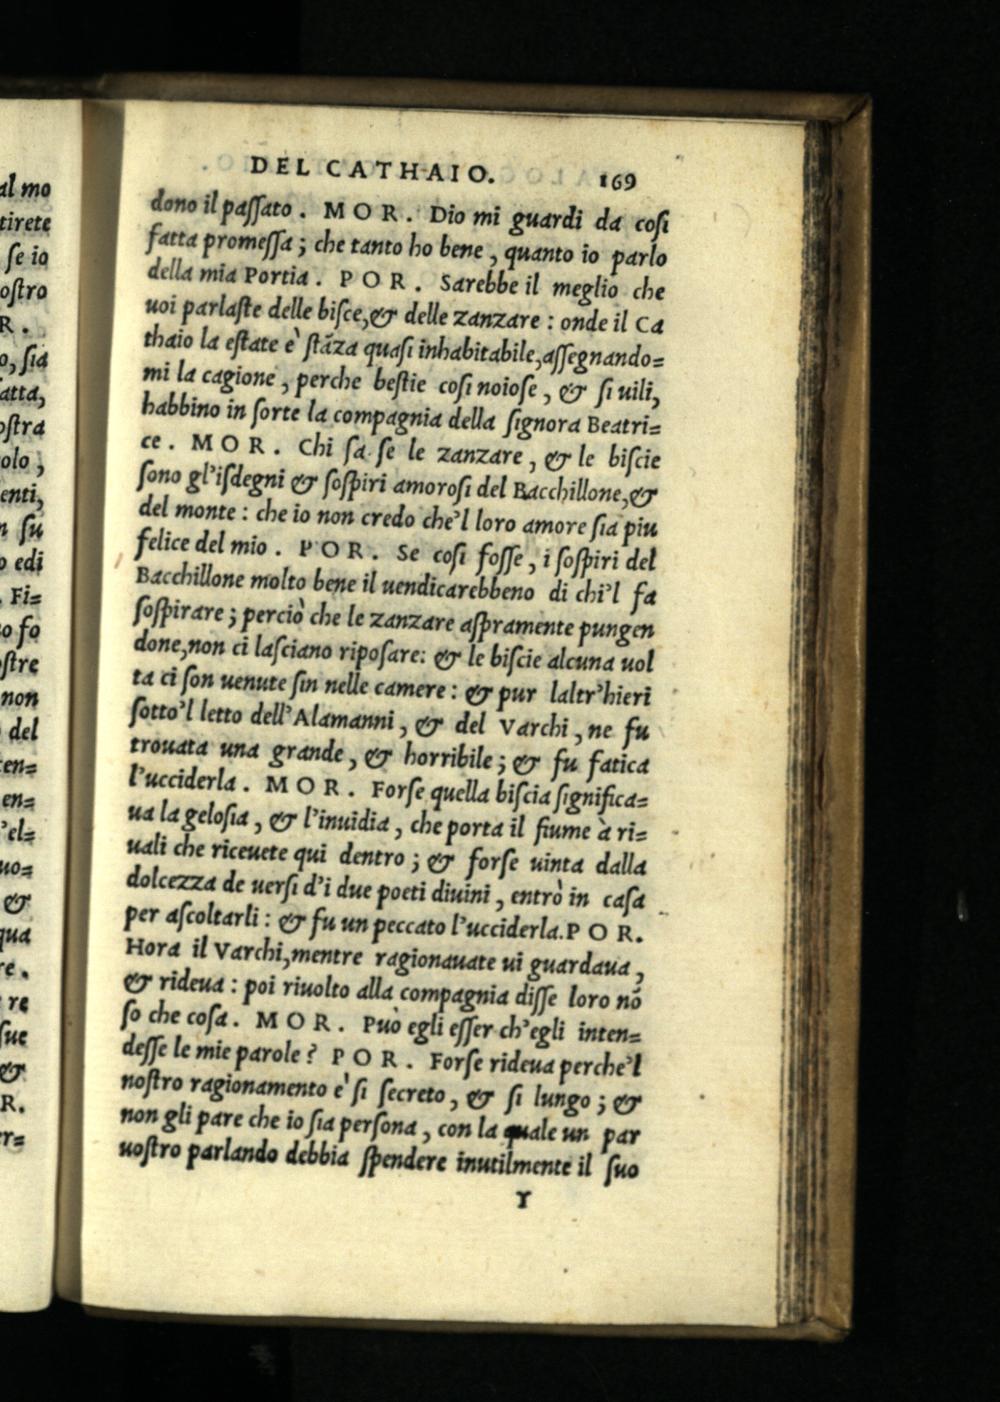 DEL CATHAIO. 169
dono il paſſato. MOR. Dio mi guardi da coſi
fatta promeſſa; che tanto ho bene, quanto io parlo
della mia Portia. POR. Sarebbe il meglio che
uoi parlaſte delle biſce,& delle zanzare: onde il Ca
thaio la eſtate è ſtãza quaſi inhabitabile,aſſegnando=
mi la cagione, perche beſtie coſi noioſe, & ſi uili,
habbino in ſorte la compagnia della ſignora Beatri=
ce. MOR. Chi ſa ſe le zanzare, & le biſcie
ſono gl'iſdegni & ſoſpiri amoroſi del Bacchillone,&
del monte: che io non credo che'l loro amore ſia piu
felice del mio. POR. Se coſi foſſe, i ſoſpiri del
Bacchillone molto bene il uendicarebbeno di chi'l fa
ſoſpirare; perciò che le zanzare aſpramente pungen
done,non ci laſciano ripoſare: & le biſcie alcuna uol
ta ci ſon uenute ſin nelle camere: & pur laltr'hieri
ſotto'l letto dell'Alamanni, & del Varchi, ne fu
trouata una grande, & horribile; & fu fatica
l'ucciderla. MOR. Forſe quella biſcia ſignifica=
ua la geloſia, & l'inuidia, che porta il fiume à ri=
uali che riceuete qui dentro; & forſe uinta dalla
dolcezza de uerſi d'i due poeti diuini, entrò in caſa
per aſcoltarli: & fu un peccato l'ucciderla. POR.
Hora il Varchi,mentre ragionauate ui guardaua,
& rideua: poi riuolto alla compagnia diſſe loro nõ
ſo che coſa. MOR. Può egli eſſer ch'egli inten=
deſſe le mie parole? POR. Forſe rideua perche'l
noſtro ragionamento è ſi ſecreto, & ſi lungo; &
non gli pare che io ſia perſona, con la quale un par
uoſtro parlando debbia ſpendere inutilmente il ſuo
Y
al mo
tirete
ſe io
oſtro
R.
o, ſia
atta,
oſtra
olo,
enti,
n ſu
o edi
. Fi=
o fo
oſtre
non
del
ten=
en=
'el=
uo=
&
qua
re.
re
ſue
&
R.
er=